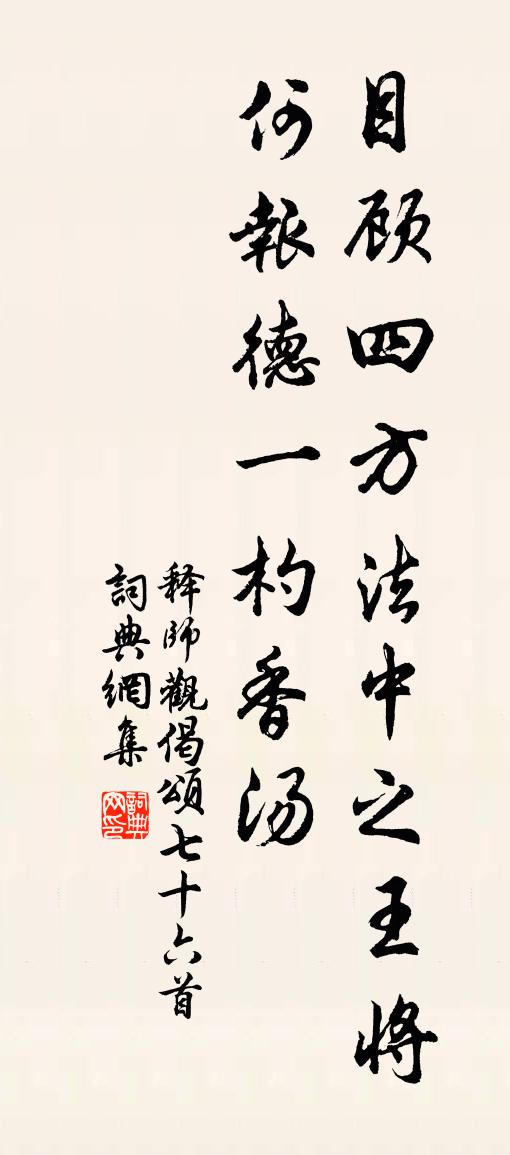 目顾四方法中之王将
何報德一杓香汤
释师觀偈頌七十六首
詞典網集
詞典
网印